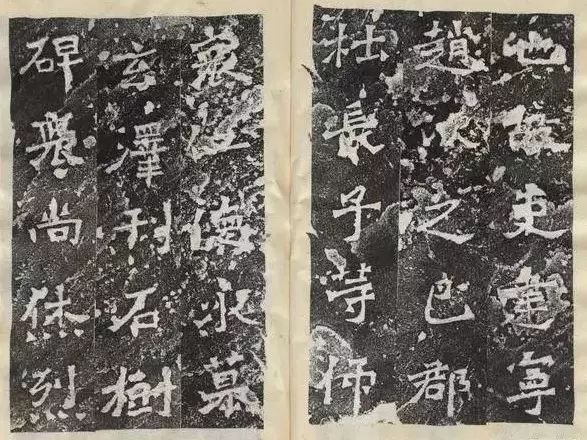 也故吏建寧
趙次之巴郡
杜長子等仰
哀仁德永慕
玄澤刊石樹
碑襃尚休烈